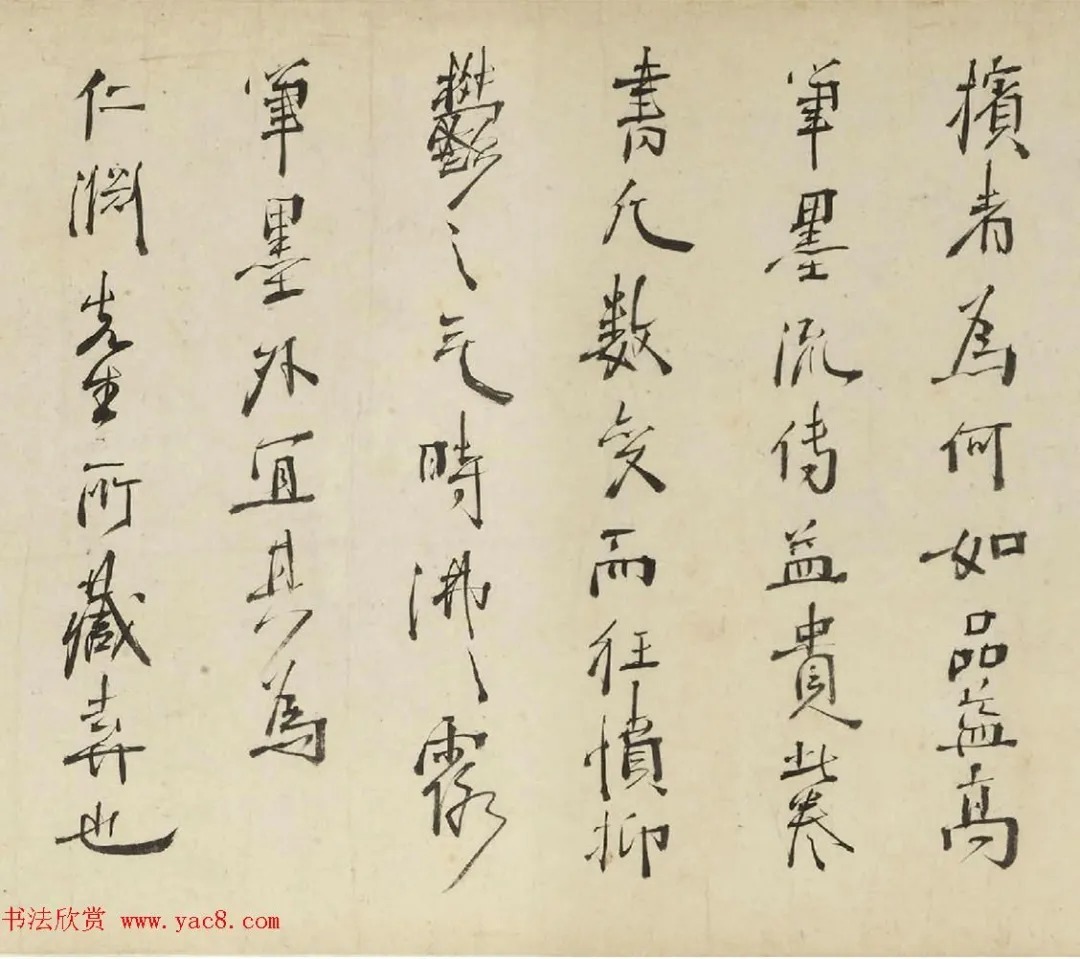 擯者為何如品益高
筆墨流傳益貴此卷
書凡數變而狂憤抑
鬱之氣時沸沸露
筆墨外宜其為
仁淵先生所藏弆也
书法欣赏 www.yac8.com